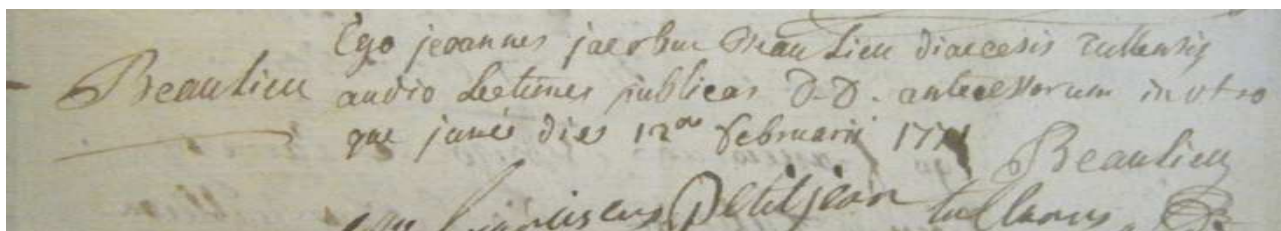 Ego joannes jacobus Beau Lieu diaecesis tullensis
Beaulieu audio Lectiones publicas D.D. antecessorum in utro
que jure die 12a februarii 1771
Beaulieu
franciscus Petitjean tullensis